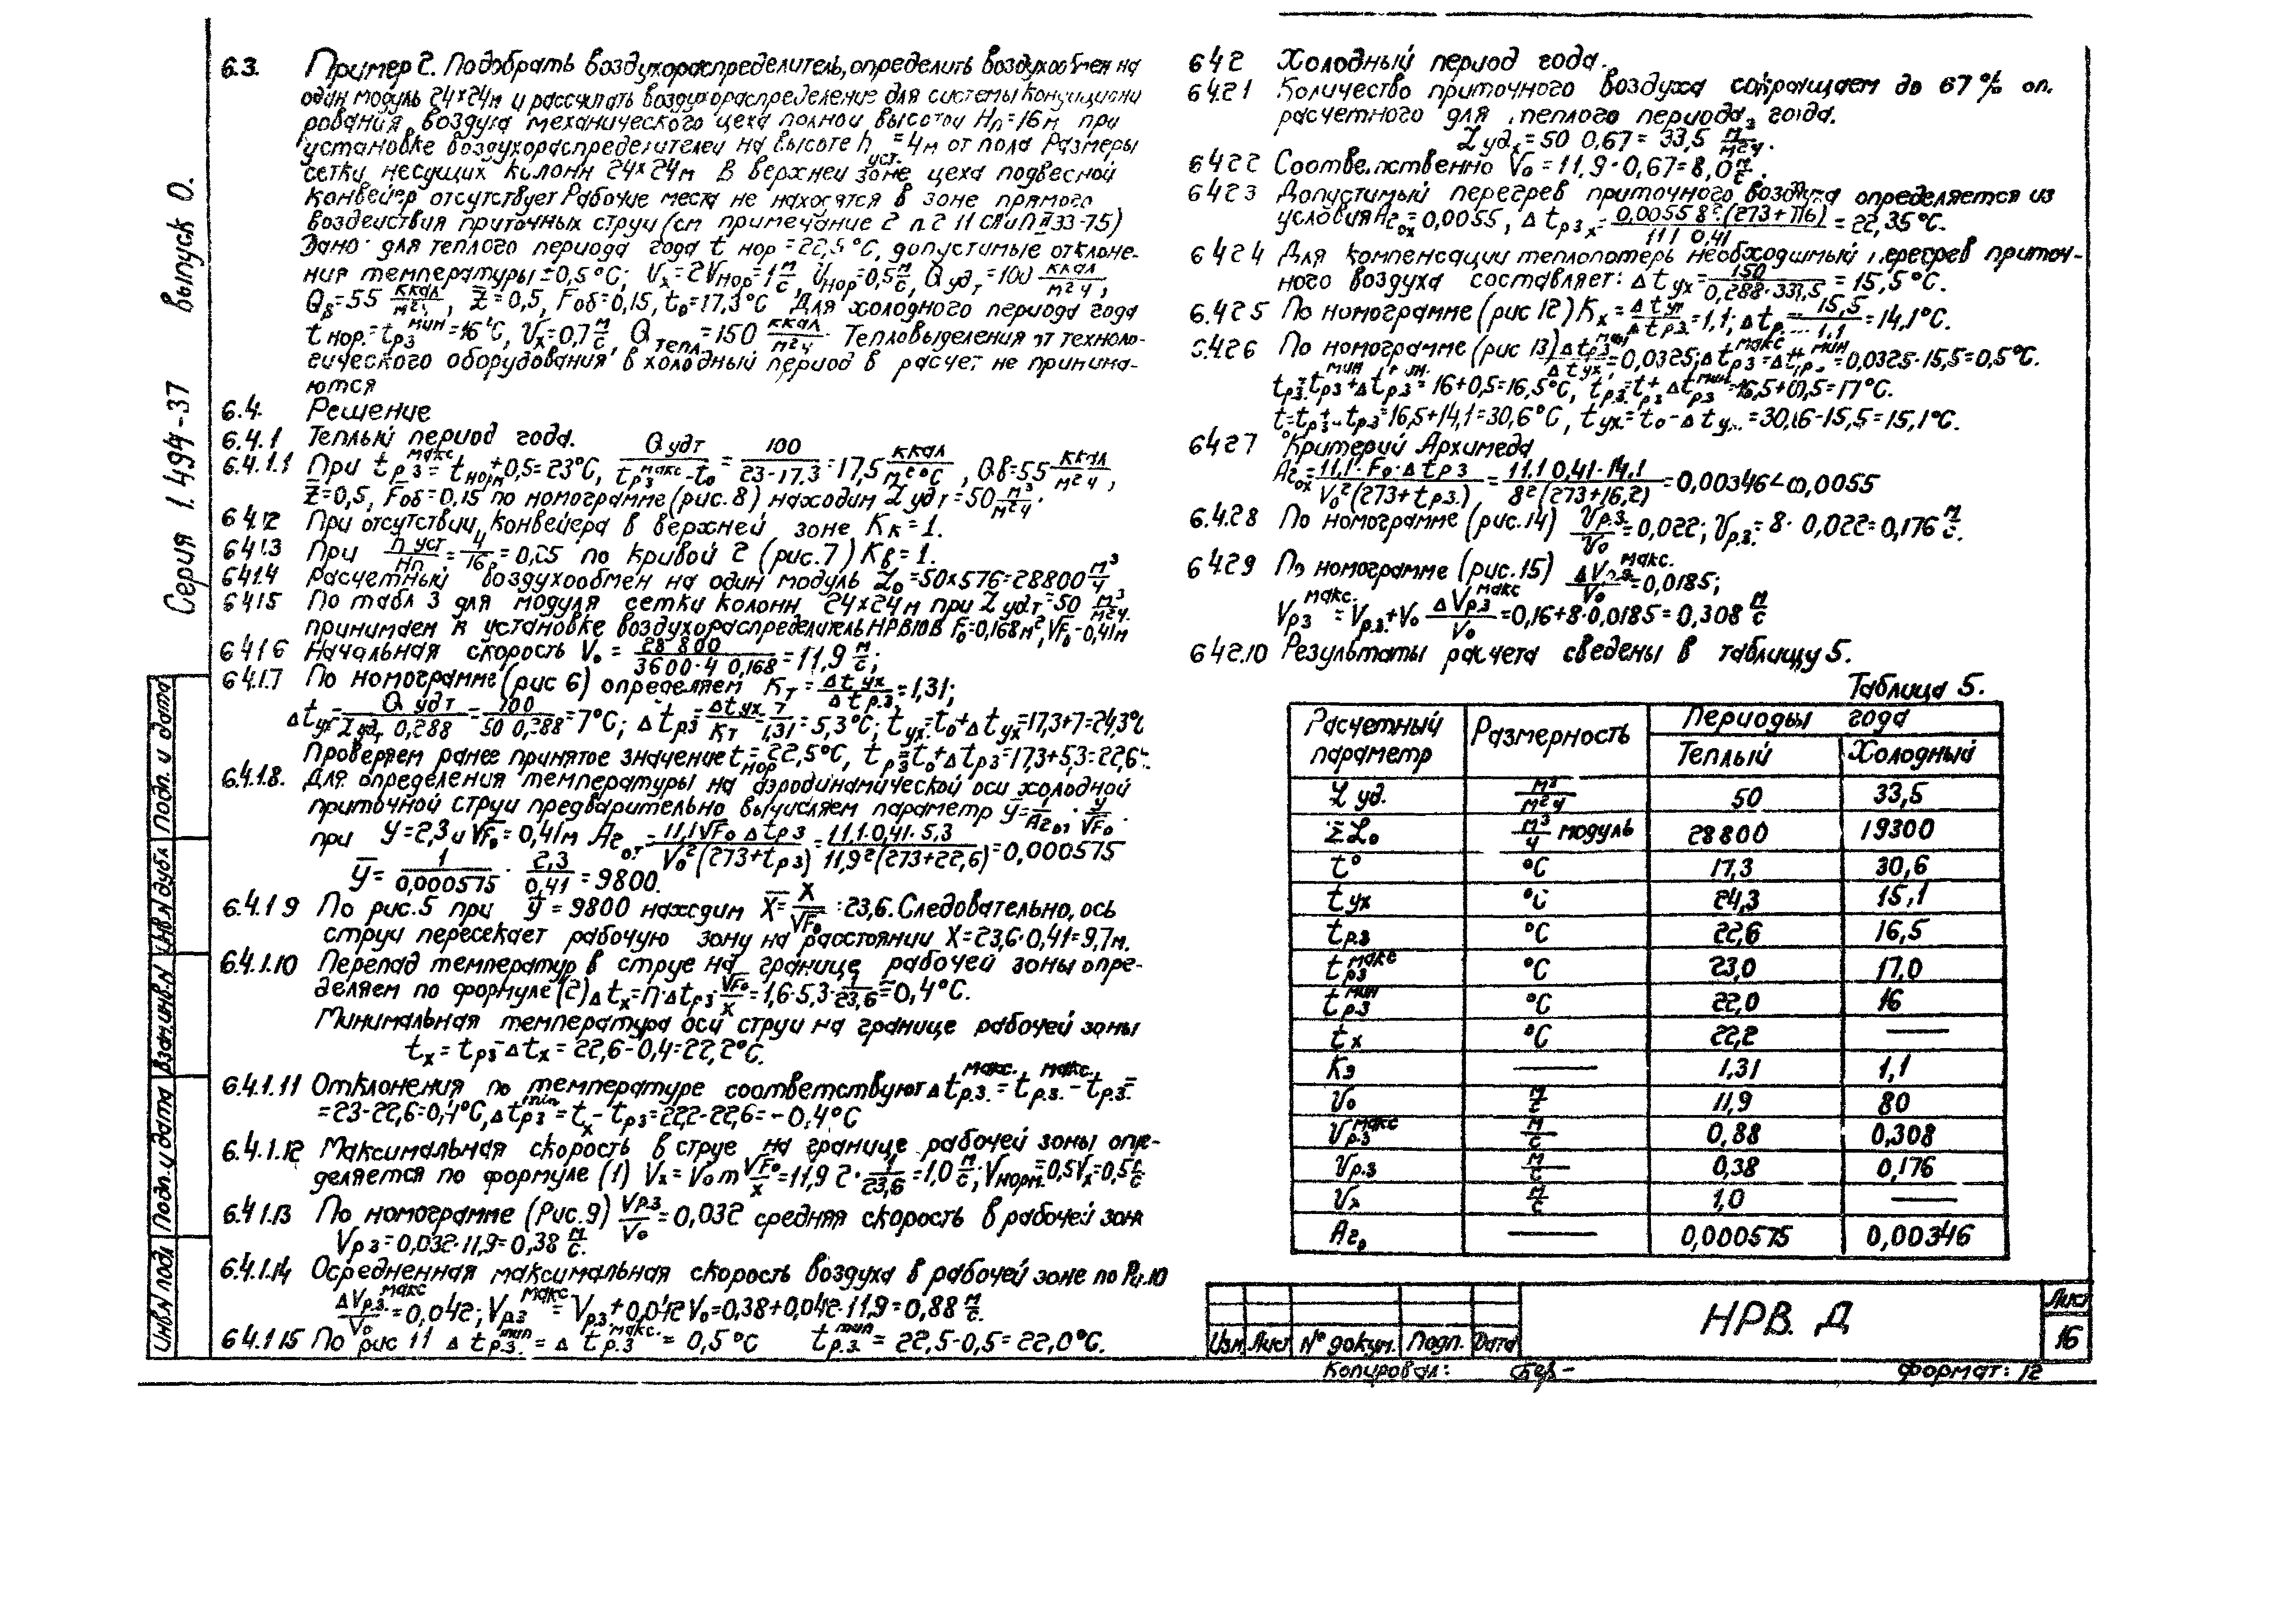 Серия 1.494-37 Выпуск 0.
6.3. Пример 2. Подобрать воздухораспределитель, определить воздухообмен на
один модуль 24×24м и рассчитать воздухораспределение для системы кондициони
рования воздуха механического цеха полной высотой Hп=16м при
установке воздухораспределителей на высоте h уст.=4м от пола Размеры
сетки несущих колонн 24×24м В верхней зоне цеха подвесной
конвейер отсутствует Рабочие места не находятся в зоне прямого
воздействия приточных струй (см примечание 2 п.2 11 СНиП II 33-75)
Дано: для теплого периода года t нор=22,5°С, допустимые отклоне-
ния температуры ±0,5°С; Vх=2Vнор=1 м/с, Vнор=0,5 м/с, Qудт=100 ккал/м²ч,
Qв=55 ккал/м²ч, z̄=0,5, Fоб=0,15, t₀=17,3°С Для холодного периода года
tнор.=tрз мин=16°С, Vх=0,7 м/с, Qтепл=150 ккал/м²ч Тепловыделения от техноло-
гического оборудования в холодный период в расчет не принима-
ются
6.4. Решение
6.4.1 Теплый период года.
6.4.1.1 При tр.з макс=tнорм+0,5=23°С, Qудт/(tрз макс-t₀)=100/(23-17.3)=17,5 ккал/м²ч°С, Qв=55 ккал/м²ч,
z̄=0,5, Fоб=0,15 по номограмме (рис. 8) находим Lудт=50 м³/м²ч.
6 4.12 При отсутствии конвейера в верхней зоне Кк=1.
6 4 1.3 При hуст/Нп=4/16=0,25 по кривой 2 (рис.7) Кв=1.
6 4 1.4 Расчетный воздухообмен на один модуль L₀=50×576=28800 м³/ч
6 4 1 5 По табл 3 для модуля сетки колонн 24×24м при Lудт=50 м³/м²ч.
принимаем к установке воздухораспределитель НРВ10В F₀=0,168м², √F₀=0,41м
6 4 1 6 Начальная скорость V₀=28 800/(3600·4 0,168)=11,9 м/с;
6 4.1.7 По номограмме (рис 6) определяем Кт=Δtух/Δtр.з.=1,31;
Δtух=Qудт/(Lуд 0,288)=100/(50 0,288)=7°С; Δtрз=Δtух/Кт=7/1,31=5,3°С; tух=t₀+Δtух=17,3+7=24,3°С
Проверяем ранее принятое значение tнор=22,5°С, tрз=t₀+Δtрз=17,3+5,3=22,6°.
6.4.1.8. Для определения температуры на аэродинамической оси холодной
приточной струи предварительно вычисляем параметр ȳ=1/Аr₀т·y/√F₀.
при y=2,3 и √F₀=0,41м Ar₀т=11,1√F₀Δtрз/V₀²(273+tрз)=11.1·0,41·5,3/11,9²(273+22,6)=0,000575
ȳ=1/0,000575·2,3/0,41=9800.
6.4.1 9 По рис.5 при ȳ=9800 находим x̄=x/√F₀=23,6. Следовательно, ось
струи пересекает рабочую зону на расстоянии X=23,6·0,41=9,7м.
6.4.1.10 Перепад температур в струе на границе рабочей зоны опре-
деляем по формуле (2) Δtх=n·Δtрз·√F₀/x=1,6·5,3·1/23,6=0,4°С.
Минимальная температура оси струи на границе рабочей зоны
tх=tрз-Δtх=22,6-0,4=22,2°С.
6.4.1.11 Отклонения по температуре соответствуют Δtр.з. макс.=tр.з. макс.-tр.з.=
=23-22,6=0,4°С, Δtрз min=tх-tрз=22,2-22,6=-0,4°С
6.4.1.12 Максимальная скорость в струе на границе рабочей зоны опре-
деляется по формуле (1) Vх=V₀m√F₀/x=11,9 2·1/23,6=1,0 м/с; Vнорм.=0,5Vх=0,5 м/с
6.4 1.13 По номограмме (Рис.9) Vр.з/V₀=0,032 средняя скорость в рабочей зоне
Vр з=0,032·11,9=0,38 м/с.
6.4.1.14 Осредненная максимальная скорость воздуха в рабочей зоне по Ри.10
ΔVр.з. макс/V₀=0,042; Vрз макс=Vрз+0,042V₀=0,38+0,042·11,9=0,88 м/с.
6 4.1 15 По рис 11 Δtр.з. min=Δtр.з макс.=0,5°С tр.з. min=22,5-0,5=22,0°С.
6 4 2 Холодный период года.
6 4.2 1 Количество приточного воздуха сокращаем до 67% от.
расчетного для теплого периода года.
Lудх=50 0,67=33,5 м³/м²ч.
6 4 2 2 Соответственно V₀=11,9·0,67=8,0 м/с.
6 4 2 3 Допустимый перегрев приточного воздуха определяется из
условия Ar₀х=0,0055, Δtрзх=0,0055 8²·(273+16)/11 1 0,41=22,35°С.
6 4 2 4 Для компенсации теплопотерь необходимый перегрев приточ-
ного воздуха составляет: Δtух=150/0,288·33,5=15,5°С.
6.4 2 5 По номограмме (рис 12) Кх=Δtух/Δtрз.=1,1; Δtр...=15,5/1,1=14,1°С.
6.4 2 6 По номограмме (рис 13) Δtрз мин/Δtух=0,0325; Δtрз макс=Δtрз мин=0,0325·15,5=0,5°С.
tрз=tрз мин+Δtрз мин=16+0,5=16,5°С, tрз макс=tрз+Δtрз мин=16,5+0,5=17°С.
t₀=tрз+Δtрз=16,5+14,1=30,6°С, tух=t₀-Δtух=30,6-15,5=15,1°С.
6 4 2 7 Критерий Архимеда
Ar₀х=11,1·F₀·Δtрз/V₀²(273+tрз.)=11.1 0,41·14.1/8²(273+16,2)=0,00346<0,0055
6.4.2 8 По номограмме (рис.14) Vр.з./V₀=0,022; Vр.з.=8·0,022=0,176 м/с.
6 4 2 9 По номограмме (рис.15) ΔVрз макс./V₀=0,0185;
Vрз макс.=Vр.з.+V₀ ΔVрз макс/V₀=0,16+8·0,0185=0,308 м/с
6 4 2.10 Результаты расчета сведены в таблицу 5.
Таблица 5.
Расчетный параметр Размерность Периоды года
Теплый Холодный
Lуд. м³/м²ч 50 33,5
ΣL₀ м³/ч модуль 28800 19300
t° °С 17,3 30,6
tух °С 24,3 15,1
tр.з °С 22,6 16,5
tрз макс °С 23,0 17,0
tр.з мин °С 22,0 16
tх °С 22,2 —
Кэ — 1,31 1,1
V₀ м/с 11,9 80
Vр.з макс м/с 0,88 0,308
Vр.з м/с 0,38 0,176
Vх м/с 1,0 —
Ar₀ — 0,000575 0,00346
Инв.N подл Подп. и дата Взам.инв.N Инв.N дубл Подп. и дата
Изм Лист № докум. Подп. Дата
НРВ. Д
Лист
16
Копировал: Формат: 12